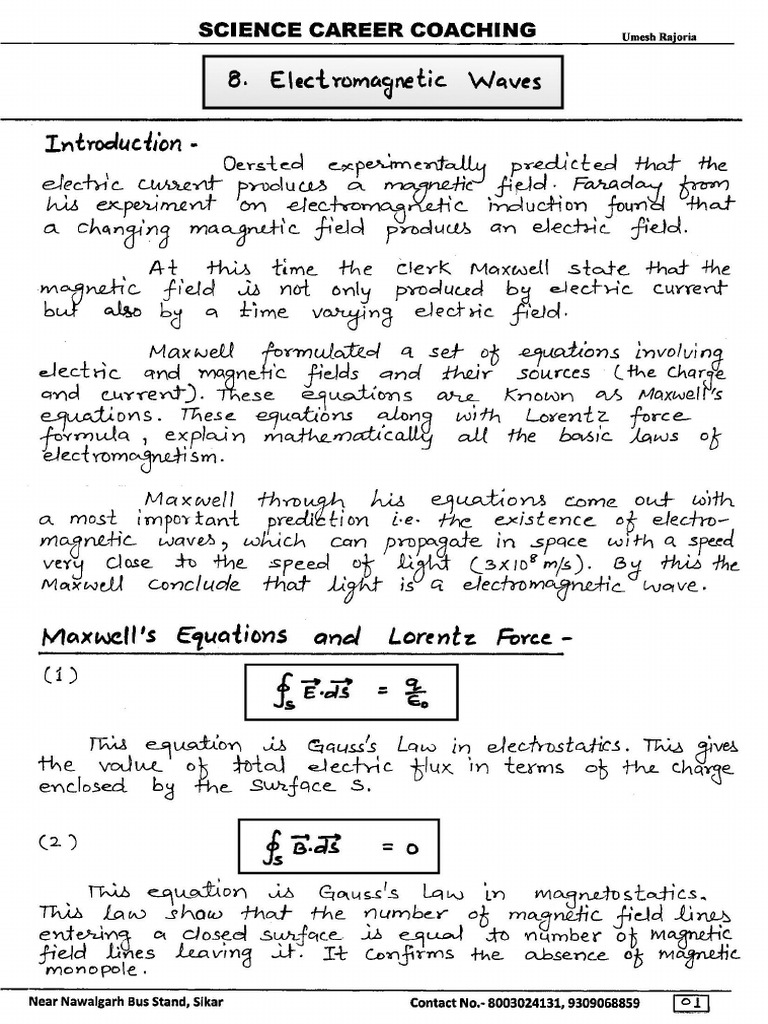 SCIENCE CAREER COACHING
Umesh Rajoria
8. Electromagnetic Waves
Introduction -
Oersted experimentally predicted that the
electric current produces a magnetic field. Faraday from
his experiment on electromagnetic induction found that
a changing maagnetic field produces an electric field.
At this time the Clerk Maxwell state that the
magnetic field is not only produced by electric current
but also by a time varying electric field.
Maxwell formulated a set of equations involving
electric and magnetic fields and their sources (the Charge
and current). These equations are Known as Maxwell's
equations. These equations along with Lorentz force
formula, explain mathematically all the basic laws of
electromagnetism.
Maxwell through his equations come out with
a most important prediction i.e. the existence of electro-
magnetic waves, which can propagate in space with a speed
very close to the speed of light (3×10⁸ m/s). By this the
Maxwell conclude that light is a electromagnetic wave.
Maxwell's Equations and Lorentz Force -
(1)
∮ₛ E⃗·ds⃗ = q/ε₀
This equation is Gauss's Law in electrostatics. This gives
the value of total electric flux in terms of the charge
enclosed by the surface S.
(2)
∮ₛ B⃗·ds⃗ = 0
This equation is Gauss's Law in magnetostatics.
This law show that the number of magnetic field lines
entering a closed surface is equal to number of magnetic
field lines leaving it. It confirms the absence of magnetic
monopole.
Near Nawalgarh Bus Stand, Sikar
Contact No.- 8003024131, 9309068859
01